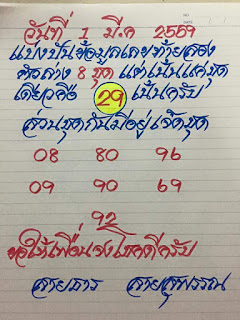 วันที่ 1 มี.ค 2569
แบ่งปันข้อมูลเลขท้ายสอง
ตัวล่าง 8 ชุด แต่เน้นแค่ชุด
เดียวคือ 29 เน้นครับ
ส่วนชุดกันมีอยู่เจ็ดชุด
08 80 96
09 90 69
92
ขอให้เพื่อนจงโชคดีครับ
สายธาร สายสุพรรณ